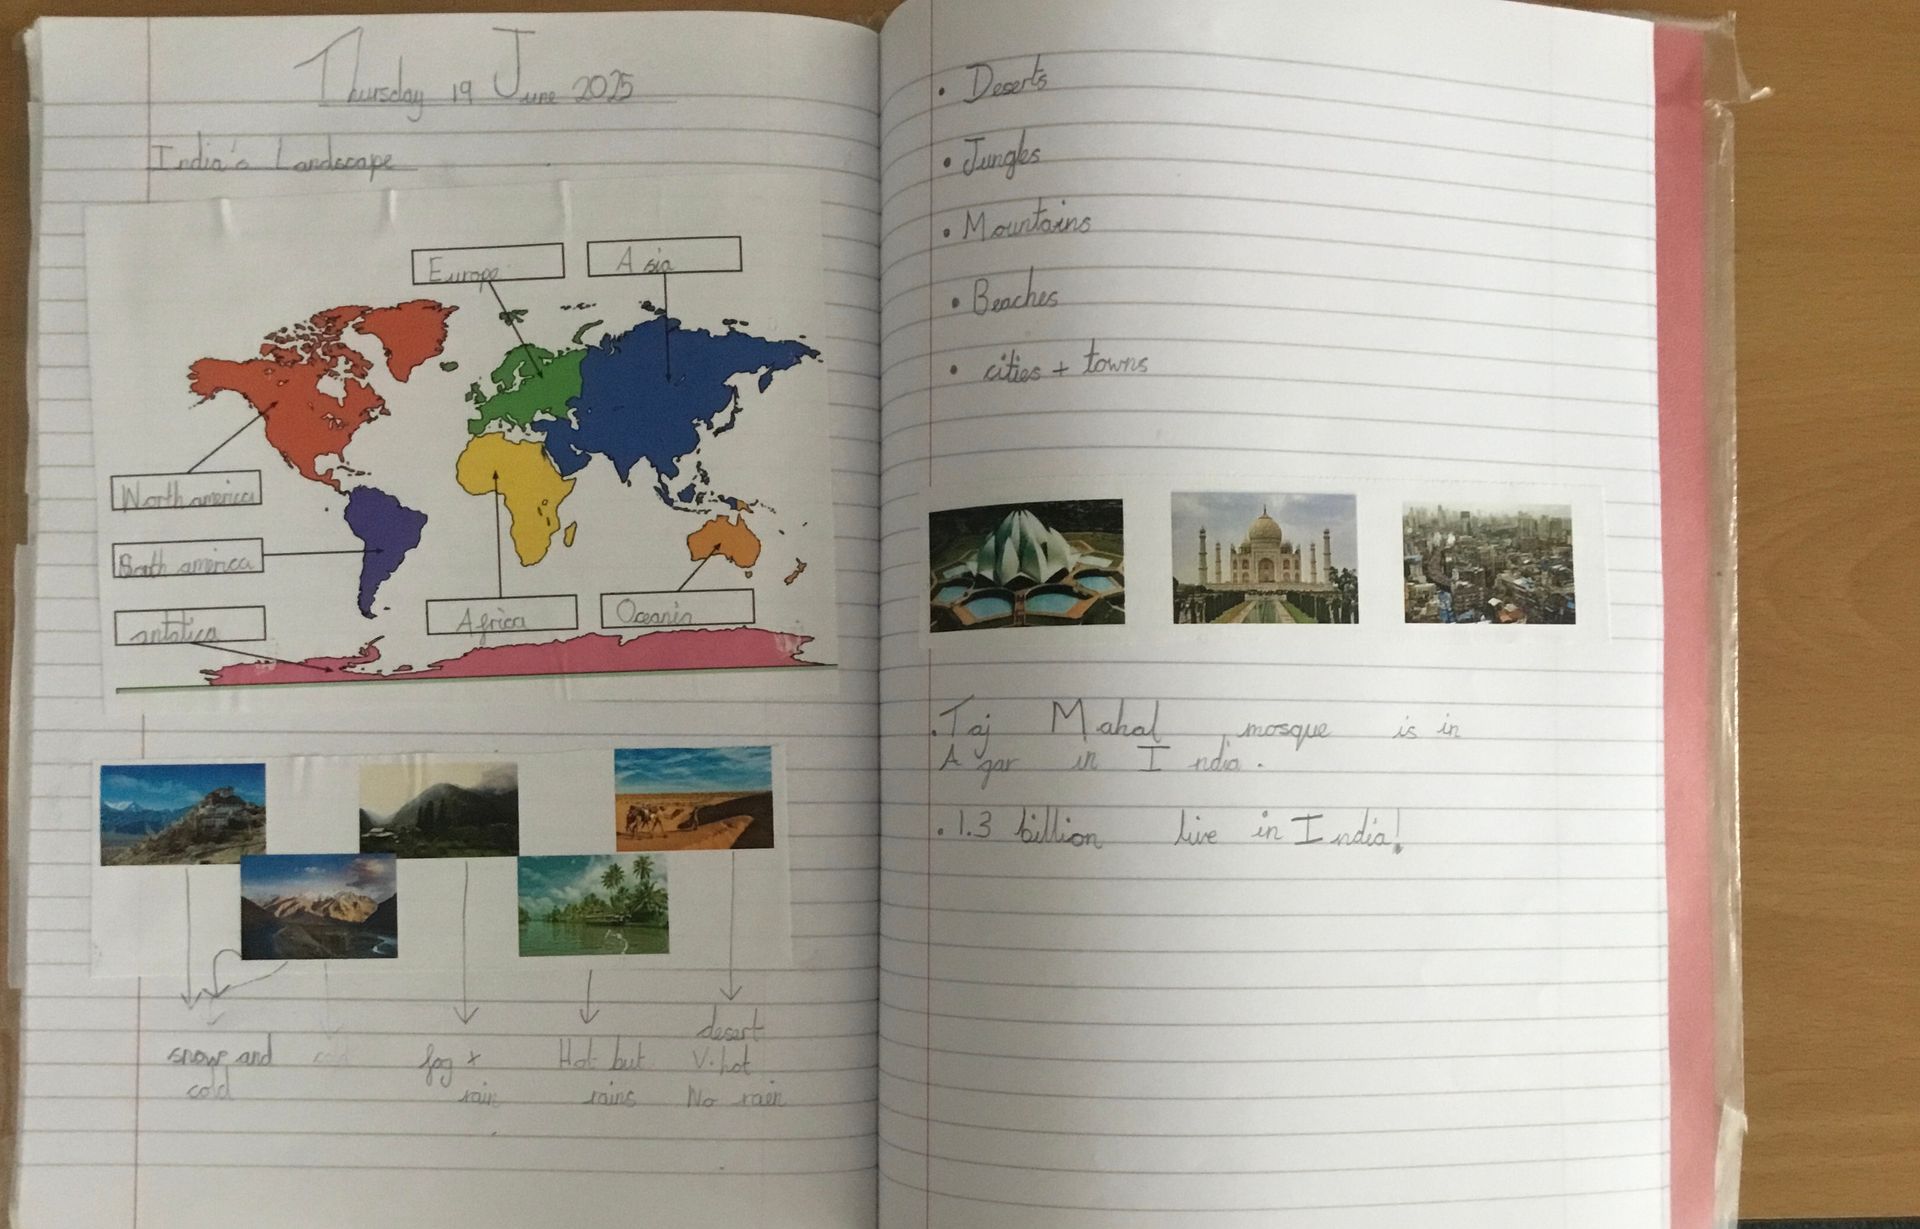 Thursday 19 June 2025
India's Landscape
Europe
Asia
North america
South america
antatica
Africa
Oceania
snow and
cold
cold
fog +
rain
Hot but
rains
desert
V.hot
No rain
• Deserts
• Jungles
• Mountains
• Beaches
• cities + towns
• Taj Mahal mosque is in
Agar in India.
• 1.3 billion live in India!